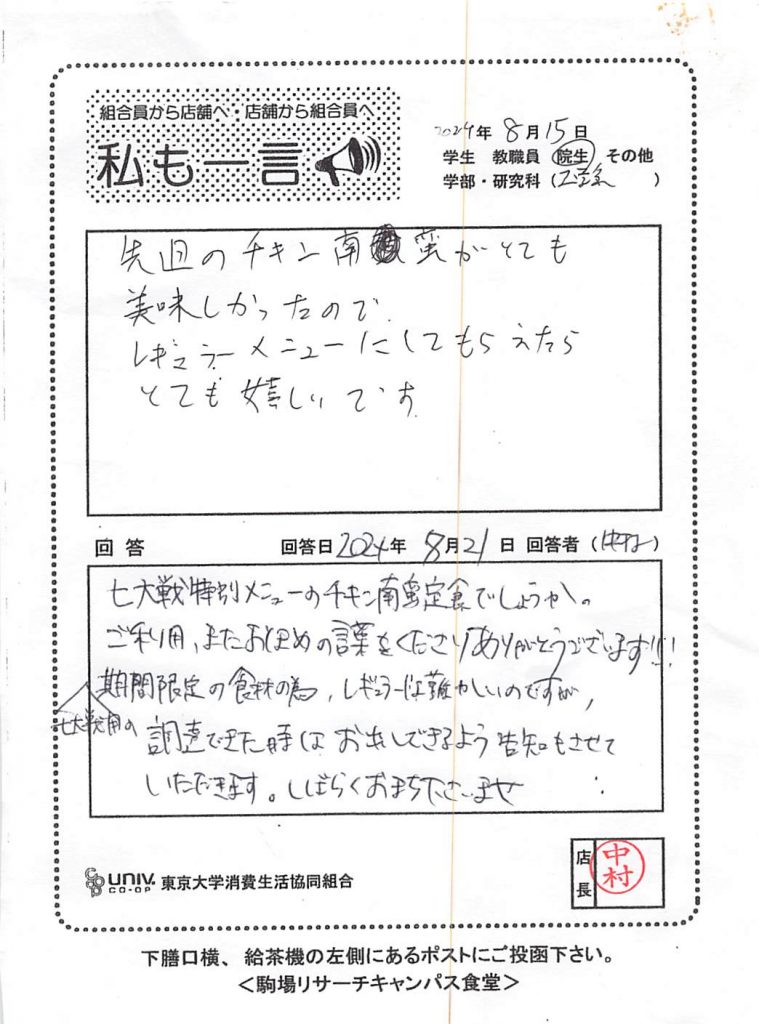 組合員から店舗へ・店舗から組合員へ
私も一言
2024年 8月15日
学生 教職員 院生 その他
学部・研究科 ( )
先週のチキン南蛮がとても
美味しかったので、
レギュラーメニューにしてもらえたら
とても嬉しいです
回答 回答日2024年 8月21日 回答者(中村)
七大戦特別メニューのチキン南蛮定食でしょうか。
ご利用、またおほめの言葉をくださりありがとうございます!!!
期間限定の食材の為、レギュラーは難かしいのですが、
七大戦用の
調達できた時はお出しできるよう告知もさせて
いただきます。しばらくおまち下さいませ
店長
中村
UNIV.
CO-OP
東京大学消費生活協同組合
下膳口横、給茶機の左側にあるポストにご投函下さい。
<駒場リサーチキャンパス食堂>